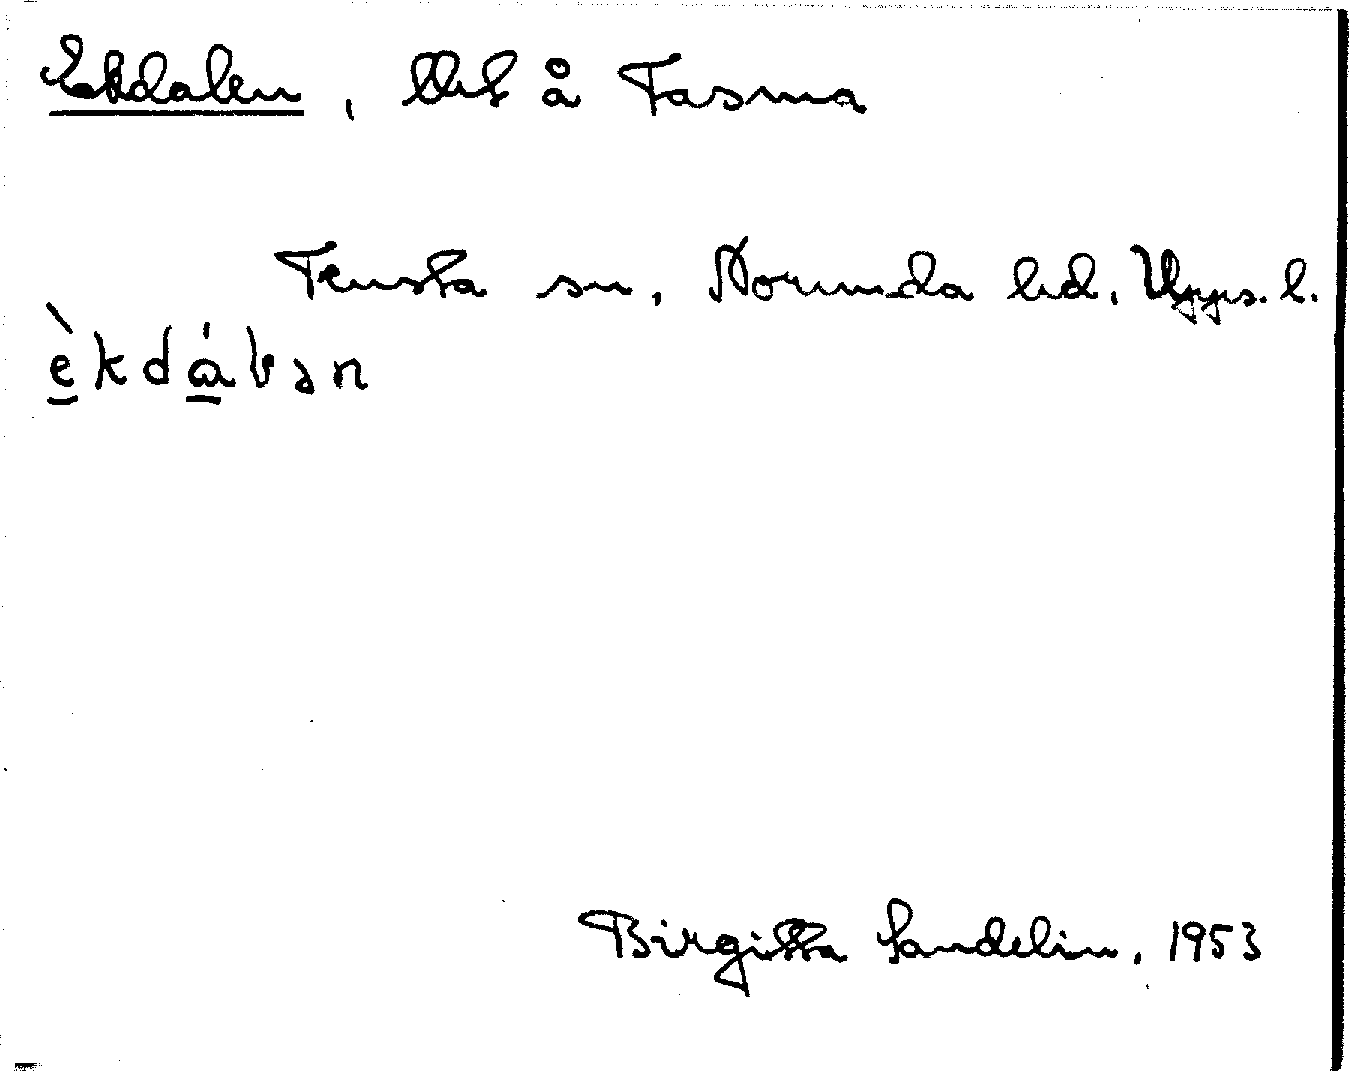 Ekdalen, lht å Tasma
Tensta sn, Norunda hd, Upps. l.
èkdálən
Birgitta Sandelin, 1953